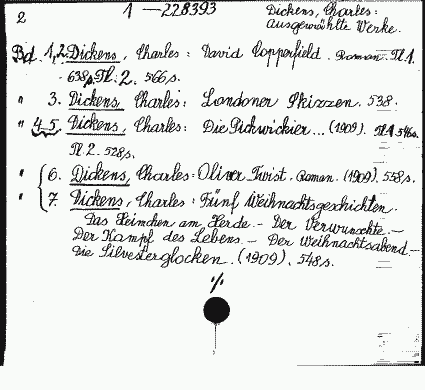 2 1—228393 Dickens, Charles:
Ausgewählte Werke.
Bd. 1,2. Dickens, Charles: David Copperfield. Roman. Tl. 1.
638 s. Tl. 2. 566 s.
" 3. Dickens, Charles: Londoner Skizzen. 538.
" 4-5. Dickens, Charles: Die Pickwickier... (1909). Tl. 1. 546 s.
Tl. 2. 528 s.
" 6. Dickens, Charles: Oliver Twist. Roman. (1909). 558 s.
" 7. Dickens, Charles: Fünf Weihnachtsgeschichten.
Das Heimchen am Herde. – Der Verwunschte. –
Der Kampf des Lebens. – Der Weihnachtsabend. –
Die Silvesterglocken. (1909). 548 s.